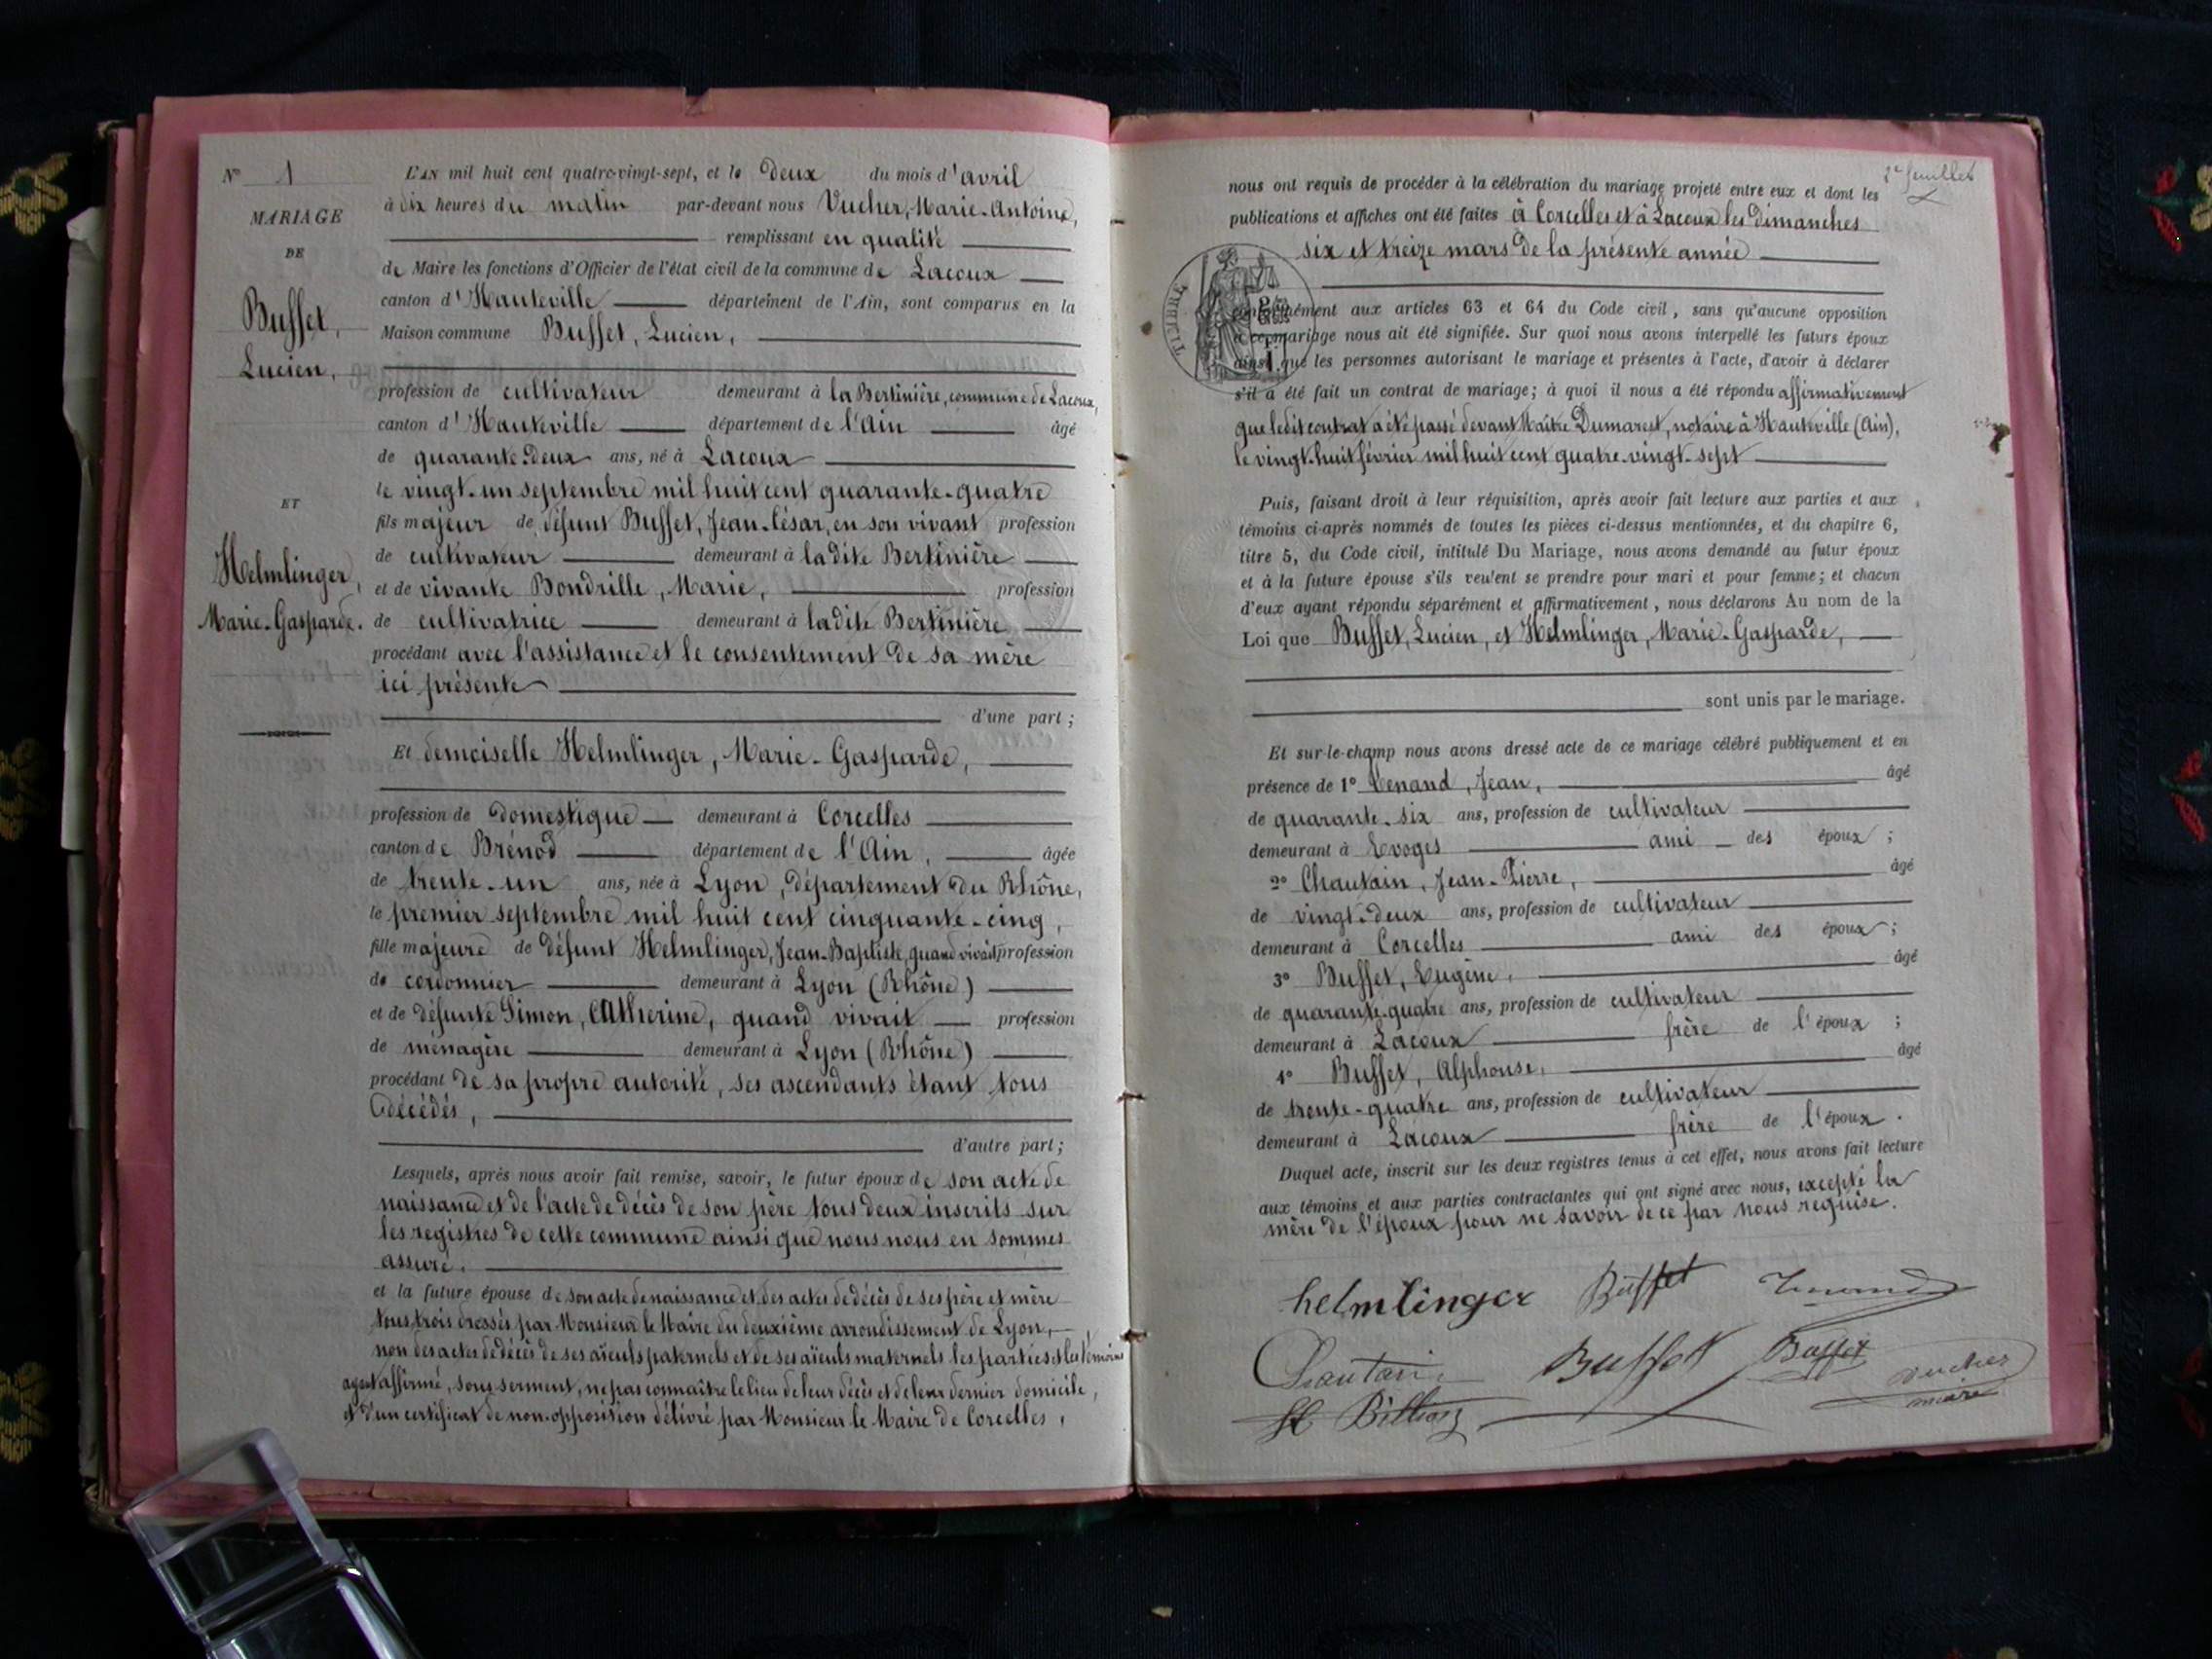 N° 1
MARIAGE
DE
Buffet,
Lucien,
ET
Helmlinger,
Marie-Gasparde.
L'AN mil huit cent quatre-vingt-sept, et le deux du mois d'avril
à dix heures du matin par-devant nous Vucher, Marie-Antoine,
remplissant en qualité
de Maire les fonctions d'Officier de l'état civil de la commune de Lacoux
canton d'Hauteville département de l'Ain, sont comparus en la
Maison commune Buffet, Lucien,
profession de cultivateur demeurant à la Bertinière, commune de Lacoux,
canton d'Hauteville département de l'Ain âgé
de quarante-deux ans, né à Lacoux
le vingt-un septembre mil huit cent quarante-quatre
fils majeur de défunt Buffet, Jean-César, en son vivant profession
de cultivateur demeurant à ladite Bertinière
et de vivante Bondrille, Marie, profession
de cultivatrice demeurant à ladite Bertinière
procédant avec l'assistance et le consentement de sa mère
ici présente
d'une part ;
Et demoiselle Helmlinger, Marie-Gasparde,
profession de domestique demeurant à Corcelles
canton de Brénod département de l'Ain, âgée
de trente-un ans, née à Lyon, département du Rhône,
le premier septembre mil huit cent cinquante-cinq,
fille majeure de défunt Helmlinger, Jean-Baptiste, quand vivait profession
de cordonnier demeurant à Lyon (Rhône)
et de défunte Simon, Catherine, quand vivait profession
de ménagère demeurant à Lyon (Rhône)
procédant de sa propre autorité, ses ascendants étant tous
décédés,
d'autre part ;
Lesquels, après nous avoir fait remise, savoir, le futur époux de son acte de
naissance et de l'acte de décès de son père tous deux inscrits sur
les registres de cette commune ainsi que nous nous en sommes
assuré.
et la future épouse de son acte de naissance et des actes de décès de ses père et mère
tous trois dressés par Monsieur le Maire du deuxième arrondissement de Lyon,
non des actes de décès de ses aïeuls paternels et de ses aïeuls maternels les parties et les témoins
ayant affirmé, sous serment, ne pas connaître le lieu de leur décès et de leur dernier domicile,
et d'un certificat de non-opposition délivré par Monsieur le Maire de Corcelles,
2e feuillet
nous ont requis de procéder à la célébration du mariage projeté entre eux et dont les
publications et affiches ont été faites à Corcelles et à Lacoux les dimanches
six et treize mars de la présente année
TIMBRE
conformément aux articles 63 et 64 du Code civil, sans qu'aucune opposition
à ce mariage nous ait été signifiée. Sur quoi nous avons interpellé les futurs époux
ainsi que les personnes autorisant le mariage et présentes à l'acte, d'avoir à déclarer
s'il a été fait un contrat de mariage; à quoi il nous a été répondu affirmativement
que ledit contrat a été passé devant Maître Dumarest, notaire à Hauteville (Ain),
le vingt-huit février mil huit cent quatre-vingt-sept
Puis, faisant droit à leur réquisition, après avoir fait lecture aux parties et aux
témoins ci-après nommés de toutes les pièces ci-dessus mentionnées, et du chapitre 6,
titre 5, du Code civil, intitulé Du Mariage, nous avons demandé au futur époux
et à la future épouse s'ils veulent se prendre pour mari et pour femme; et chacun
d'eux ayant répondu séparément et affirmativement, nous déclarons Au nom de la
Loi que Buffet, Lucien, et Helmlinger, Marie-Gasparde,
sont unis par le mariage.
Et sur-le-champ nous avons dressé acte de ce mariage célébré publiquement et en
présence de 1° Jean, âgé
de quarante-six ans, profession de cultivateur
demeurant à Evoges ami des époux ;
2° Chautain, Jean-Pierre, âgé
de vingt-deux ans, profession de cultivateur
demeurant à Corcelles ami des époux ;
3° Buffet, Eugène, âgé
de quarante-quatre ans, profession de cultivateur
demeurant à Lacoux frère de l'époux ;
4° Buffet, Alphonse, âgé
de trente-quatre ans, profession de cultivateur
demeurant à Lacoux frère de l'époux.
Duquel acte, inscrit sur les deux registres tenus à cet effet, nous avons fait lecture
aux témoins et aux parties contractantes qui ont signé avec nous, excepté la
mère de l'époux pour ne savoir de ce par nous requise.
helmlinger Buffet
Buffet Buffet Vucher
maire